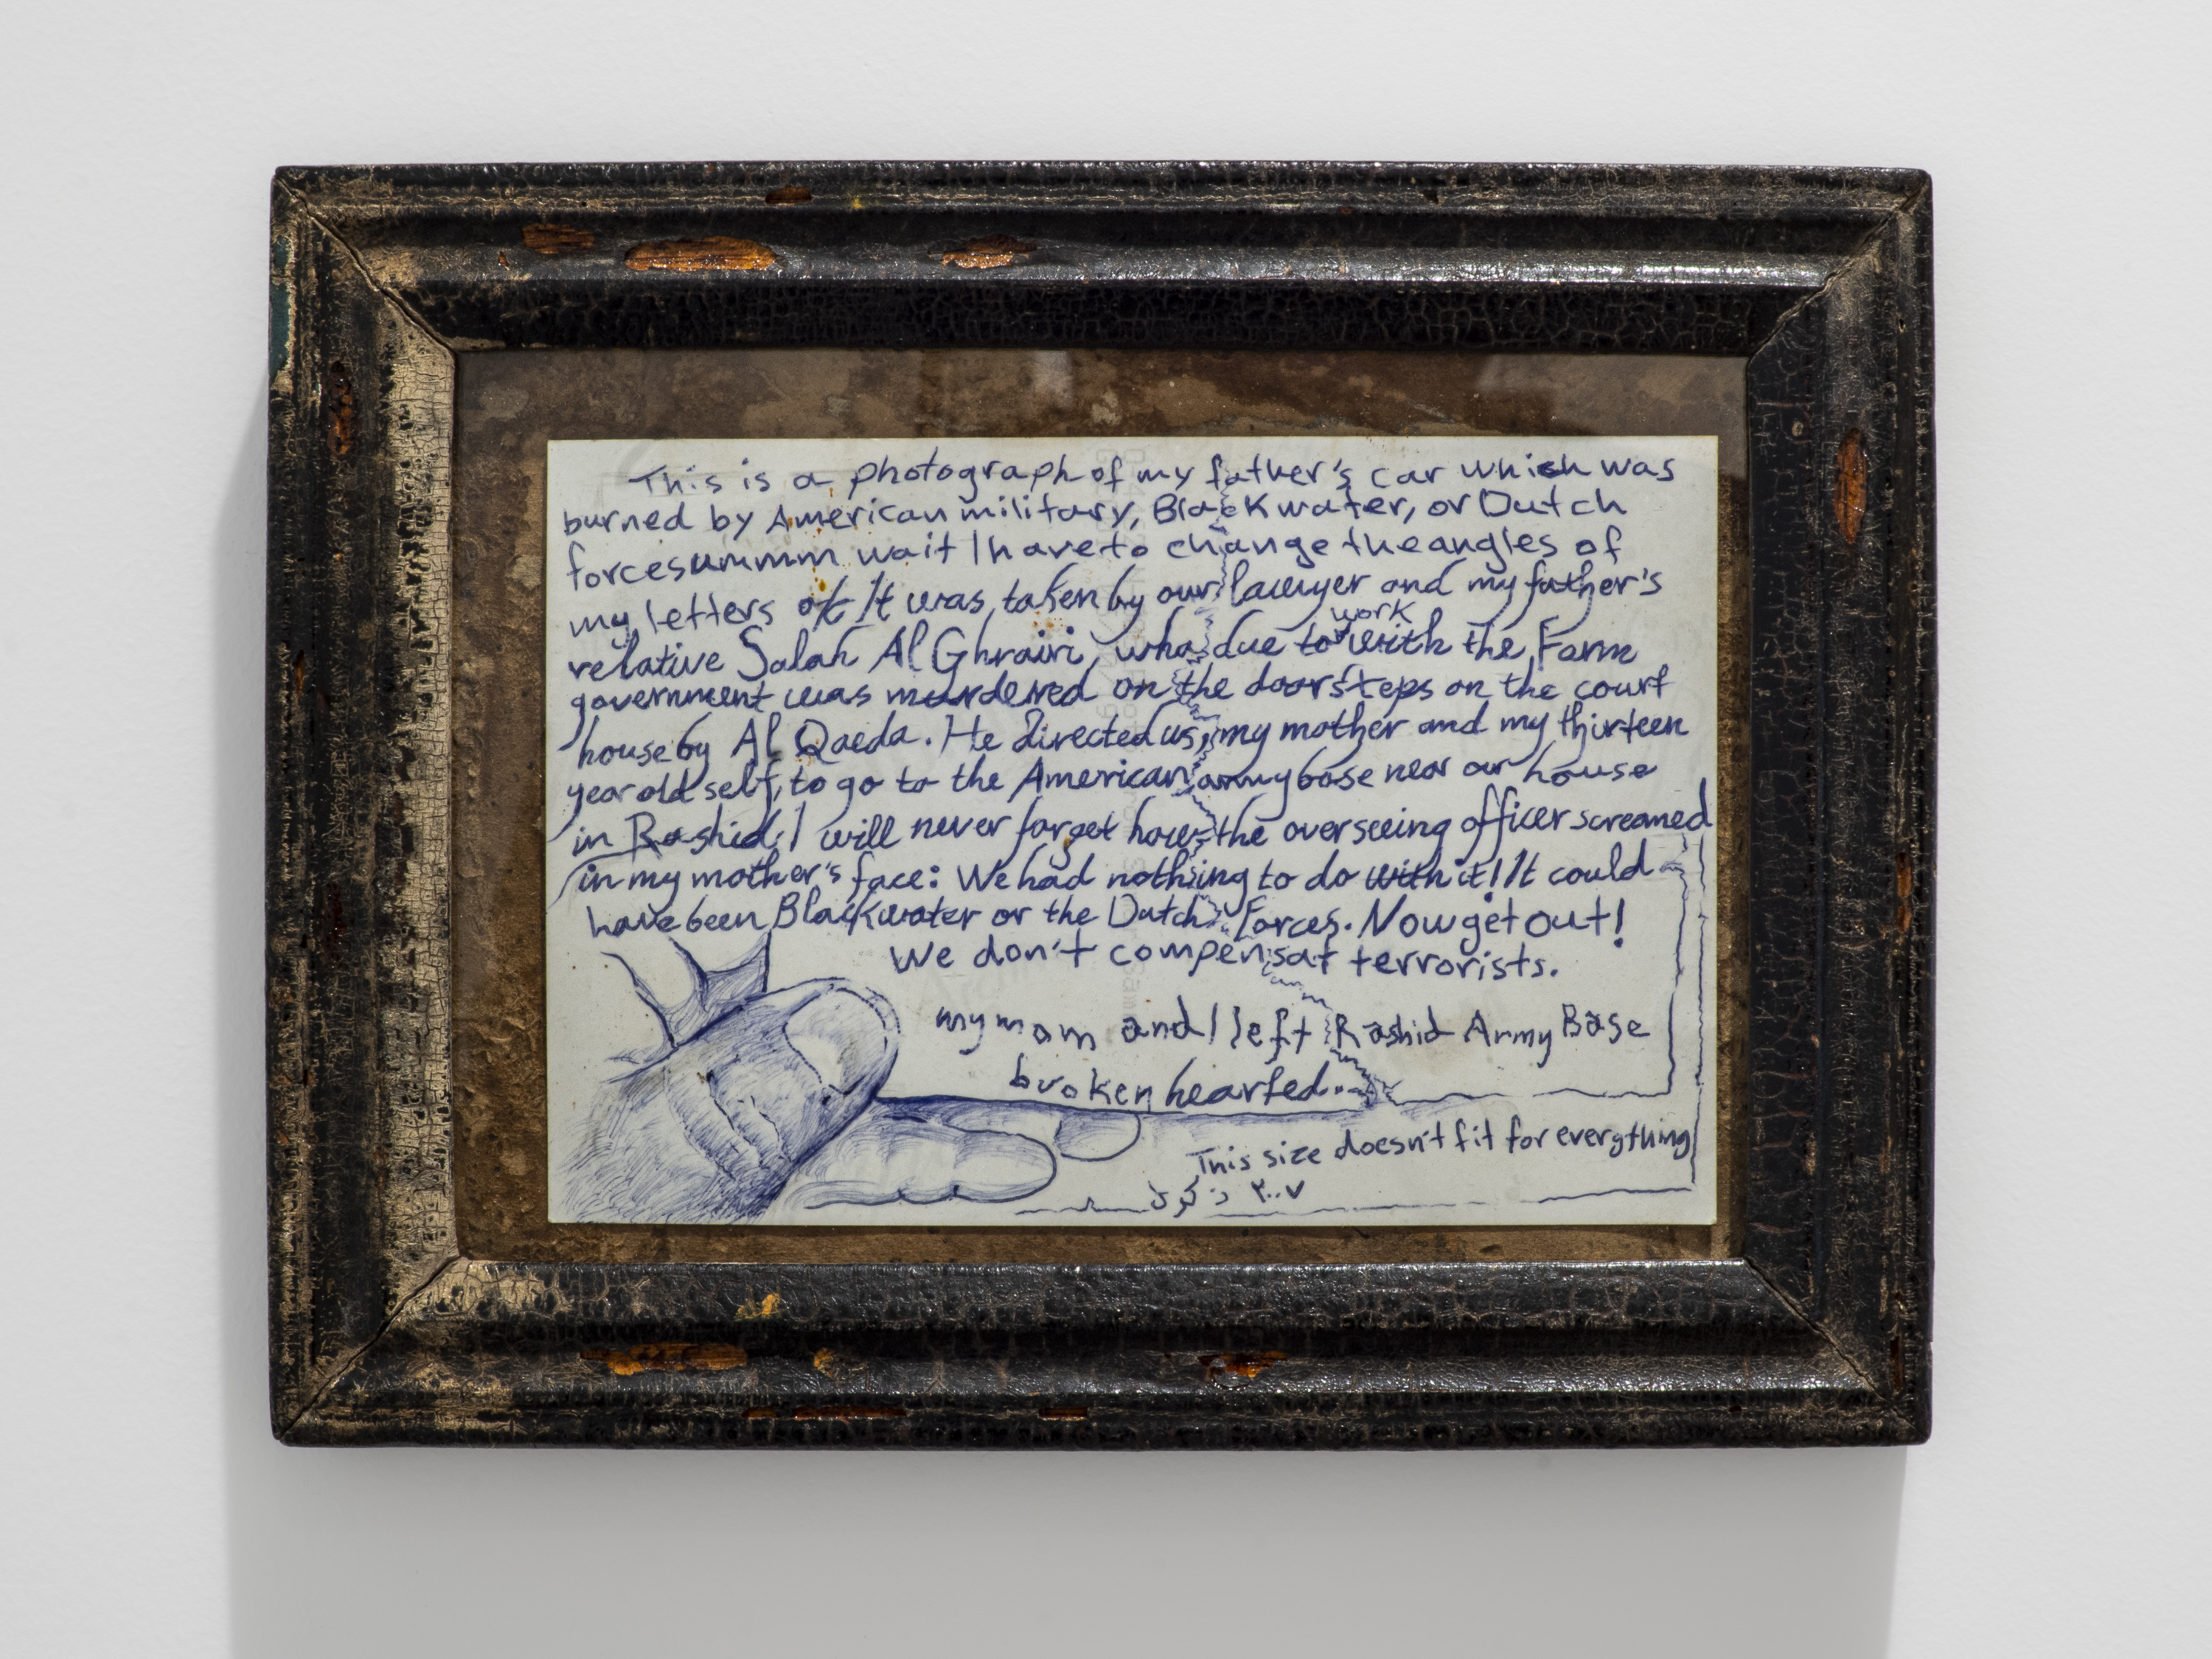 This is a photograph of my father's car which was
burned by American military, Blackwater, or Dutch
forces ummm wait I have to change the angles of
my letters ok It was taken by our lawyer and my father's
relative Salah Al Ghrairi, who due to work with the Farm
government was murdered on the doorsteps on the court
house by Al Qaeda. He directed us, my mother and my thirteen
year old self, to go to the American army base near our house
in Rashid. I will never forget how the overseeing officer screamed
in my mother's face: We had nothing to do with it! It could
have been Blackwater or the Dutch Forces. Now get out!
We don't compensat terrorists.
my mom and I left Rashid Army Base
broken hearted...
This size doesn't fit for everything
٢٠٠٧